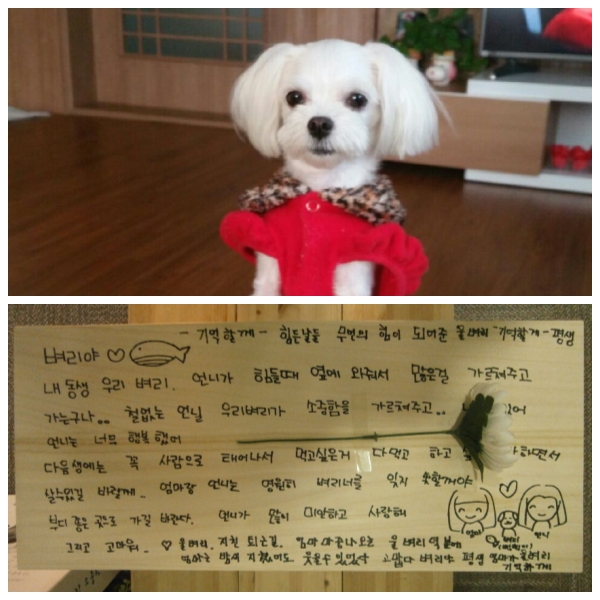 - 기억할게 - 힘든날들 무언의 힘이 되어준 울벼리 "기억할게 - 평생
벼리야 ♡
내 동생 우리 벼리. 언니가 힘들때 옆에 와줘서 많은걸 가르쳐주고
가는구나.. 철없는 언닐 우리벼리가 소중함을 가르쳐주고.. 있어
언니는 너무 행복했어
다음생에는 꼭 사람으로 태어나서 먹고싶은거 다먹고 하고 하면서
살수있길 바랄께.. 엄마랑 언니는 영원히 벼리너를 잊지 못할꺼야
부디 좋은 곳으로 가길 바란다. 언니가 많이 미안하고 사랑해
그리고 고마워.. ♡ 울벼리. 지친 퇴근길. 울 벼리
엄마는 웃을수 있었어 고맙다 벼리야 평생 울벼리
기억할게
엄마 벼리 언니